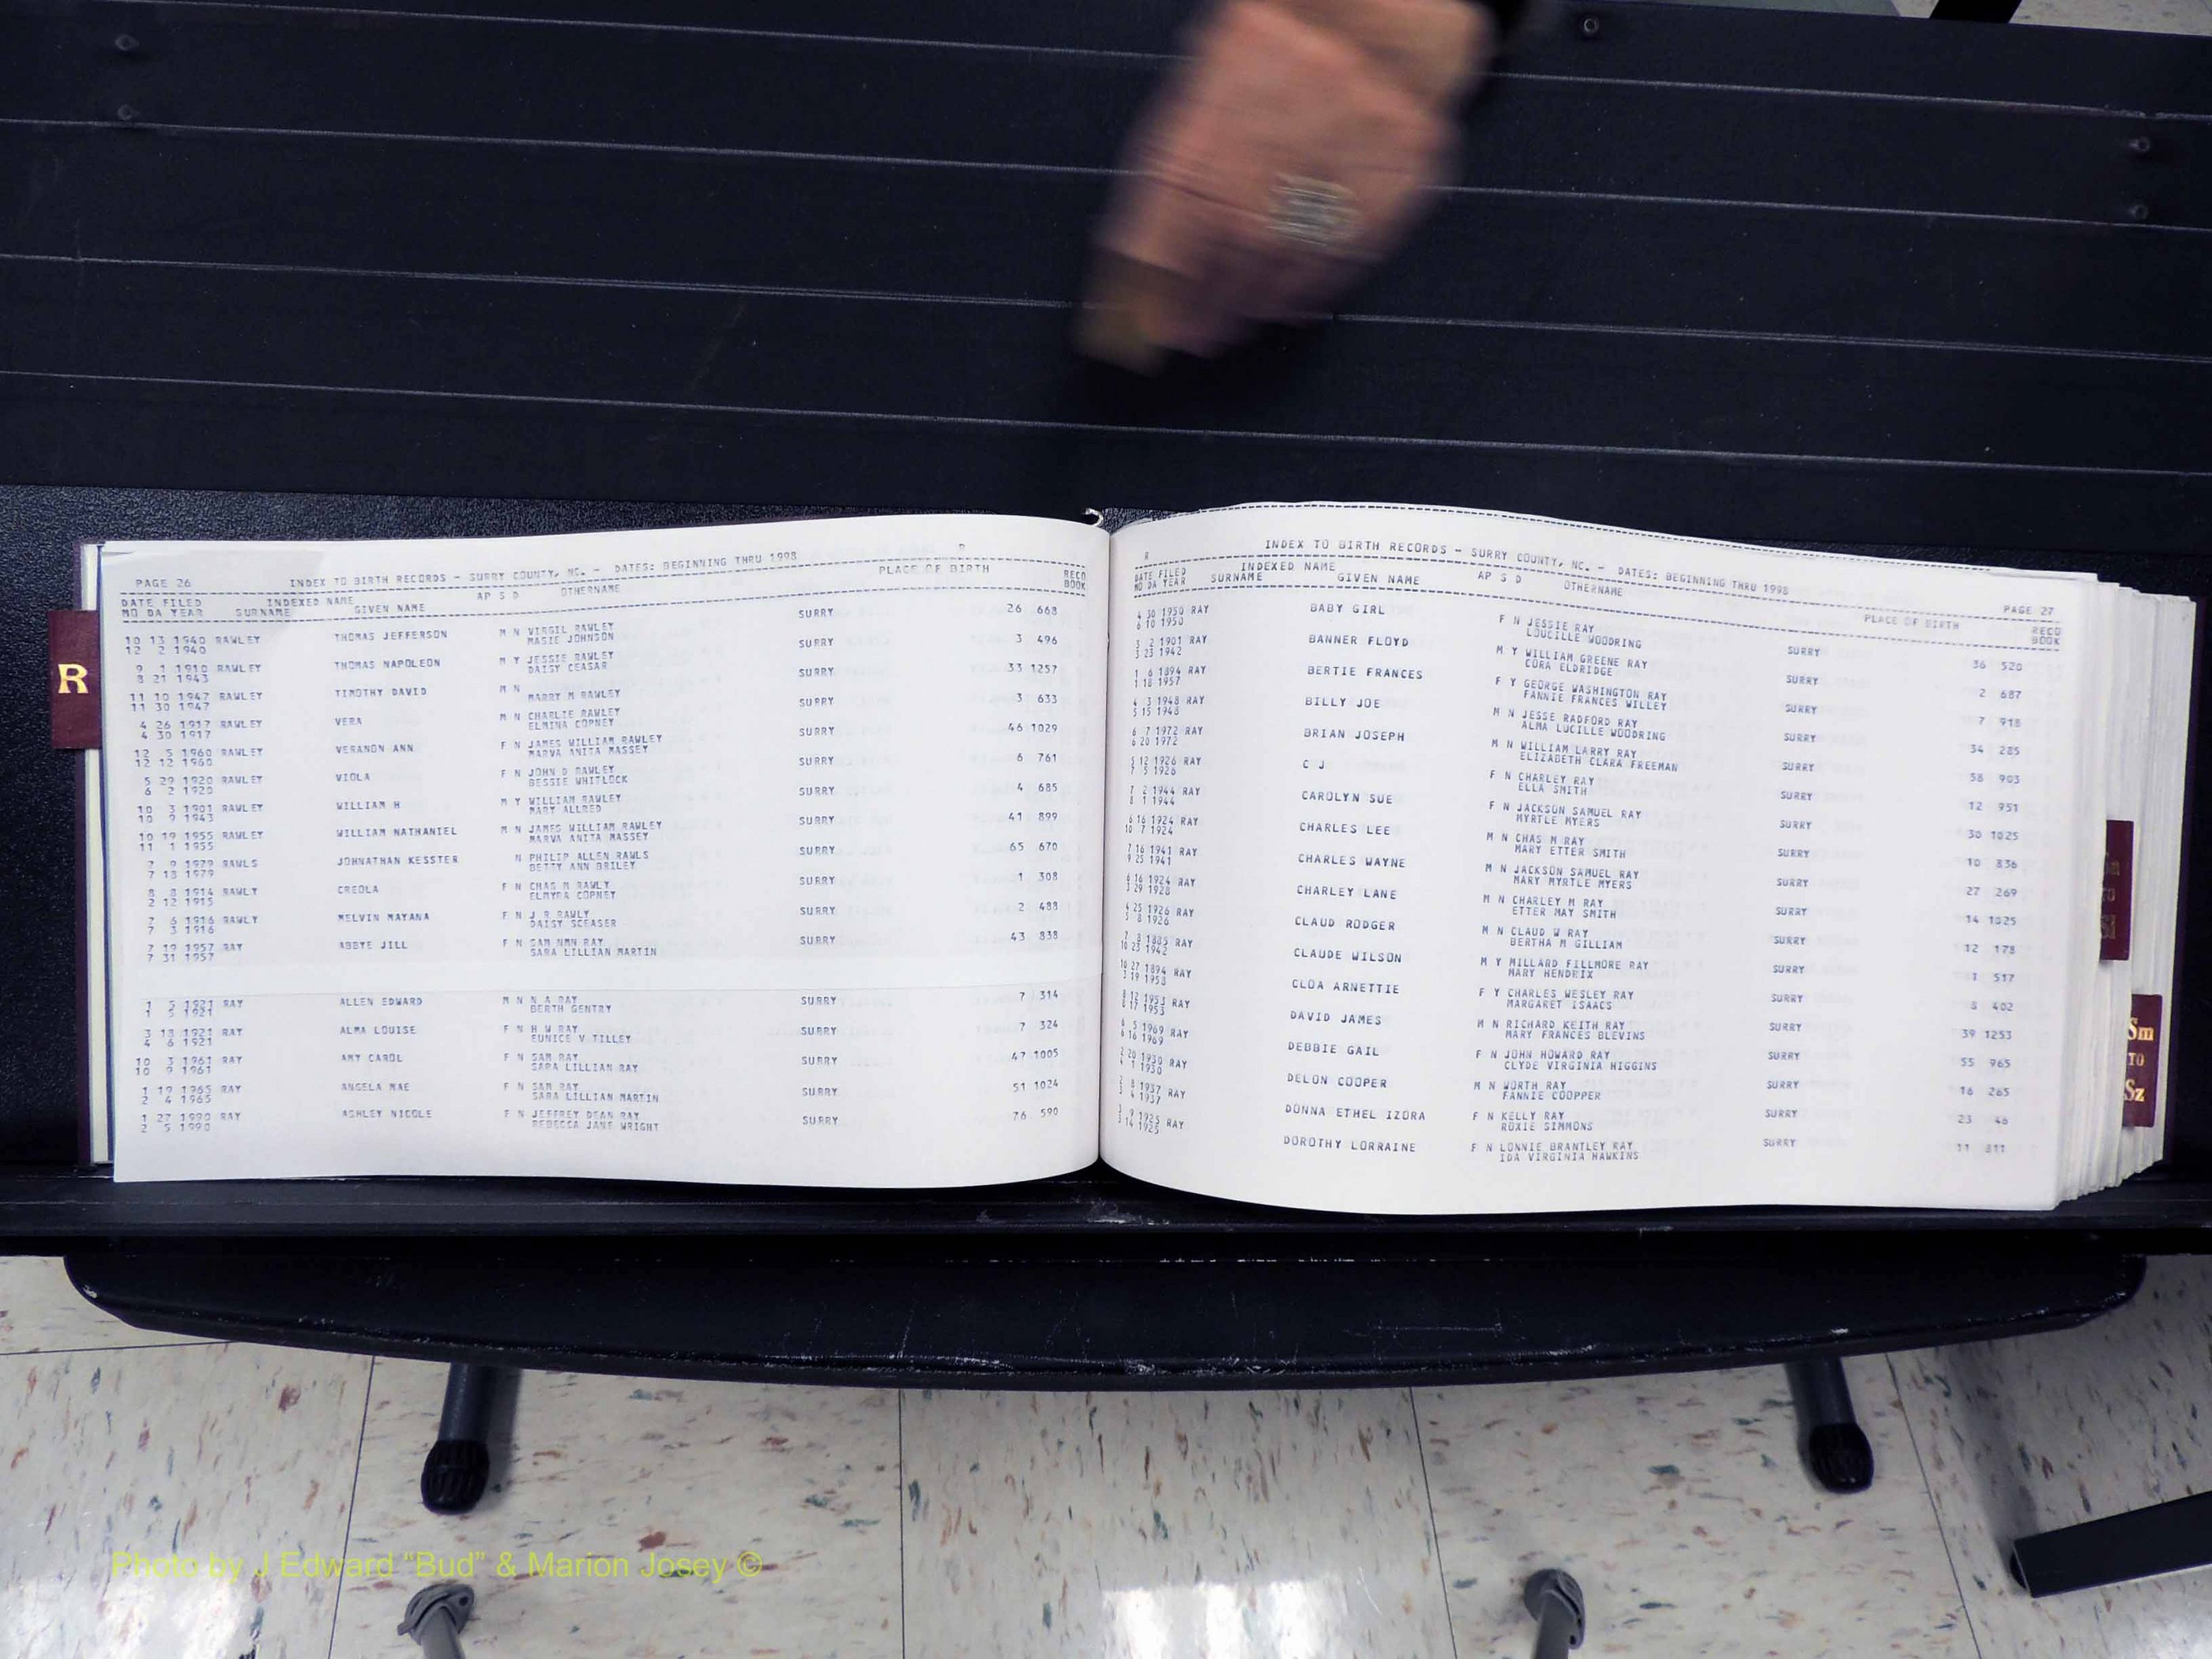 PAGE 26 INDEX TO BIRTH RECORDS - SURRY COUNTY, NC. - DATES: BEGINNING THRU 1998 R
DATE FILED INDEXED NAME AP S D OTHERNAME PLACE OF BIRTH RECD
MO DA YEAR SURNAME GIVEN NAME BOOK
10 13 1940 RAWLEY THOMAS JEFFERSON M N VIRGIL RAWLEY SURRY 26 668
12 2 1940 MASIE JOHNSON
9 1 1910 RAWLEY THOMAS NAPOLEON M Y JESSIE RAWLEY SURRY 3 496
8 21 1943 DAISY CEASAR
11 10 1947 RAWLEY TIMOTHY DAVID M N SURRY 33 1257
11 30 1947 MARRY M RAWLEY
4 26 1917 RAWLEY VERA M N CHARLIE RAWLEY SURRY 3 633
4 30 1917 ELMINA COPNEY
12 5 1960 RAWLEY VERANON ANN F N JAMES WILLIAM RAWLEY SURRY 46 1029
12 12 1960 MARVA ANITA MASSEY
5 29 1920 RAWLEY VIOLA F N JOHN D RAWLEY SURRY 6 761
6 2 1920 BESSIE WHITLOCK
10 3 1901 RAWLEY WILLIAM H M Y WILLIAM RAWLEY SURRY 4 685
10 9 1943 MARY ALLRED
10 19 1955 RAWLEY WILLIAM NATHANIEL M N JAMES WILLIAM RAWLEY SURRY 41 899
11 1 1955 MARVA ANITA MASSEY
7 9 1979 RAWLS JOHNATHAN KESSTER N PHILIP ALLEN RAWLS SURRY 65 670
7 18 1979 BETTY ANN BRILEY
8 8 1914 RAWLY CREOLA F N CHAS M RAWLY SURRY 1 308
2 12 1915 ELMYRA COPNEY
7 6 1916 RAWLY MELVIN MAYANA F N J R RAWLY SURRY 2 488
7 3 1916 DAISY SCEASER
7 19 1957 RAY ABBYE JILL F N SAM NMN RAY SURRY 43 838
7 31 1957 SARA LILLIAN MARTIN
1 5 1921 RAY ALLEN EDWARD M N N A RAY SURRY 7 314
1 5 1921 BERTH GENTRY
3 18 1921 RAY ALMA LOUISE F N H W RAY SURRY 7 324
4 6 1921 EUNICE V TILLEY
10 3 1961 RAY AMY CAROL F N SAM RAY SURRY 47 1005
10 9 1961 SARA LILLIAN RAY
1 19 1965 RAY ANGELA MAE F N SAM RAY SURRY 51 1024
2 4 1965 SARA LILLIAN MARTIN
1 27 1990 RAY ASHLEY NICOLE F N JEFFREY DEAN RAY SURRY 76 590
2 5 1990 REBECCA JANE WRIGHT
R INDEX TO BIRTH RECORDS - SURRY COUNTY, NC. - DATES: BEGINNING THRU 1998 PAGE 27
DATE FILED INDEXED NAME AP S D OTHERNAME PLACE OF BIRTH RECD
MO DA YEAR SURNAME GIVEN NAME BOOK
4 30 1950 RAY BABY GIRL F N JESSIE RAY SURRY 36 520
6 10 1950 LOUCILLE WOODRING
3 2 1901 RAY BANNER FLOYD M Y WILLIAM GREENE RAY SURRY 2 687
3 23 1942 CORA ELDRIDGE
1 6 1894 RAY BERTIE FRANCES F Y GEORGE WASHINGTON RAY SURRY 7 918
1 18 1957 FANNIE FRANCES WILLEY
4 3 1948 RAY BILLY JOE M N JESSE RADFORD RAY SURRY 34 285
5 15 1948 ALMA LUCILLE WOODRING
6 7 1972 RAY BRIAN JOSEPH M N WILLIAM LARRY RAY SURRY 58 903
6 20 1972 ELIZABETH CLARA FREEMAN
5 12 1926 RAY C J F N CHARLEY RAY SURRY 12 951
7 5 1926 ELLA SMITH
7 2 1944 RAY CAROLYN SUE F N JACKSON SAMUEL RAY SURRY 30 1025
8 1 1944 MYRTLE MYERS
6 16 1924 RAY CHARLES LEE M N CHAS M RAY SURRY 10 836
10 7 1924 MARY ETTER SMITH
7 16 1941 RAY CHARLES WAYNE M N JACKSON SAMUEL RAY SURRY 27 269
9 25 1941 MARY MYRTLE MYERS
6 16 1924 RAY CHARLEY LANE M N CHARLEY M RAY SURRY 14 1025
3 29 1928 ETTER MAY SMITH
4 25 1926 RAY CLAUD RODGER M N CLAUD W RAY SURRY 12 178
5 8 1926 BERTHA M GILLIAM
7 3 1885 RAY CLAUDE WILSON M Y MILLARD FILLMORE RAY SURRY 1 517
10 23 1942 MARY HENDRIX
10 27 1894 RAY CLOA ARNETTIE F Y CHARLES WESLEY RAY SURRY 8 402
3 19 1958 MARGARET ISAACS
8 12 1953 RAY DAVID JAMES M N RICHARD KEITH RAY SURRY 39 1253
8 17 1953 MARY FRANCES BLEVINS
6 5 1969 RAY DEBBIE GAIL F N JOHN HOWARD RAY SURRY 55 965
6 16 1969 CLYDE VIRGINIA HIGGINS
2 20 1930 RAY DELON COOPER M N WORTH RAY SURRY 16 265
4 1 1930 FANNIE COOPPER
2 8 1937 RAY DONNA ETHEL IZORA F N KELLY RAY SURRY 23 46
3 4 1937 ROXIE SIMMONS
9 1925 RAY DOROTHY LORRAINE F N LONNIE BRANTLEY RAY SURRY 11 811
14 1925 IDA VIRGINIA HAWKINS
R
Sm
TO
Sz
Photo by J Edward “Bud” & Marion Josey ©